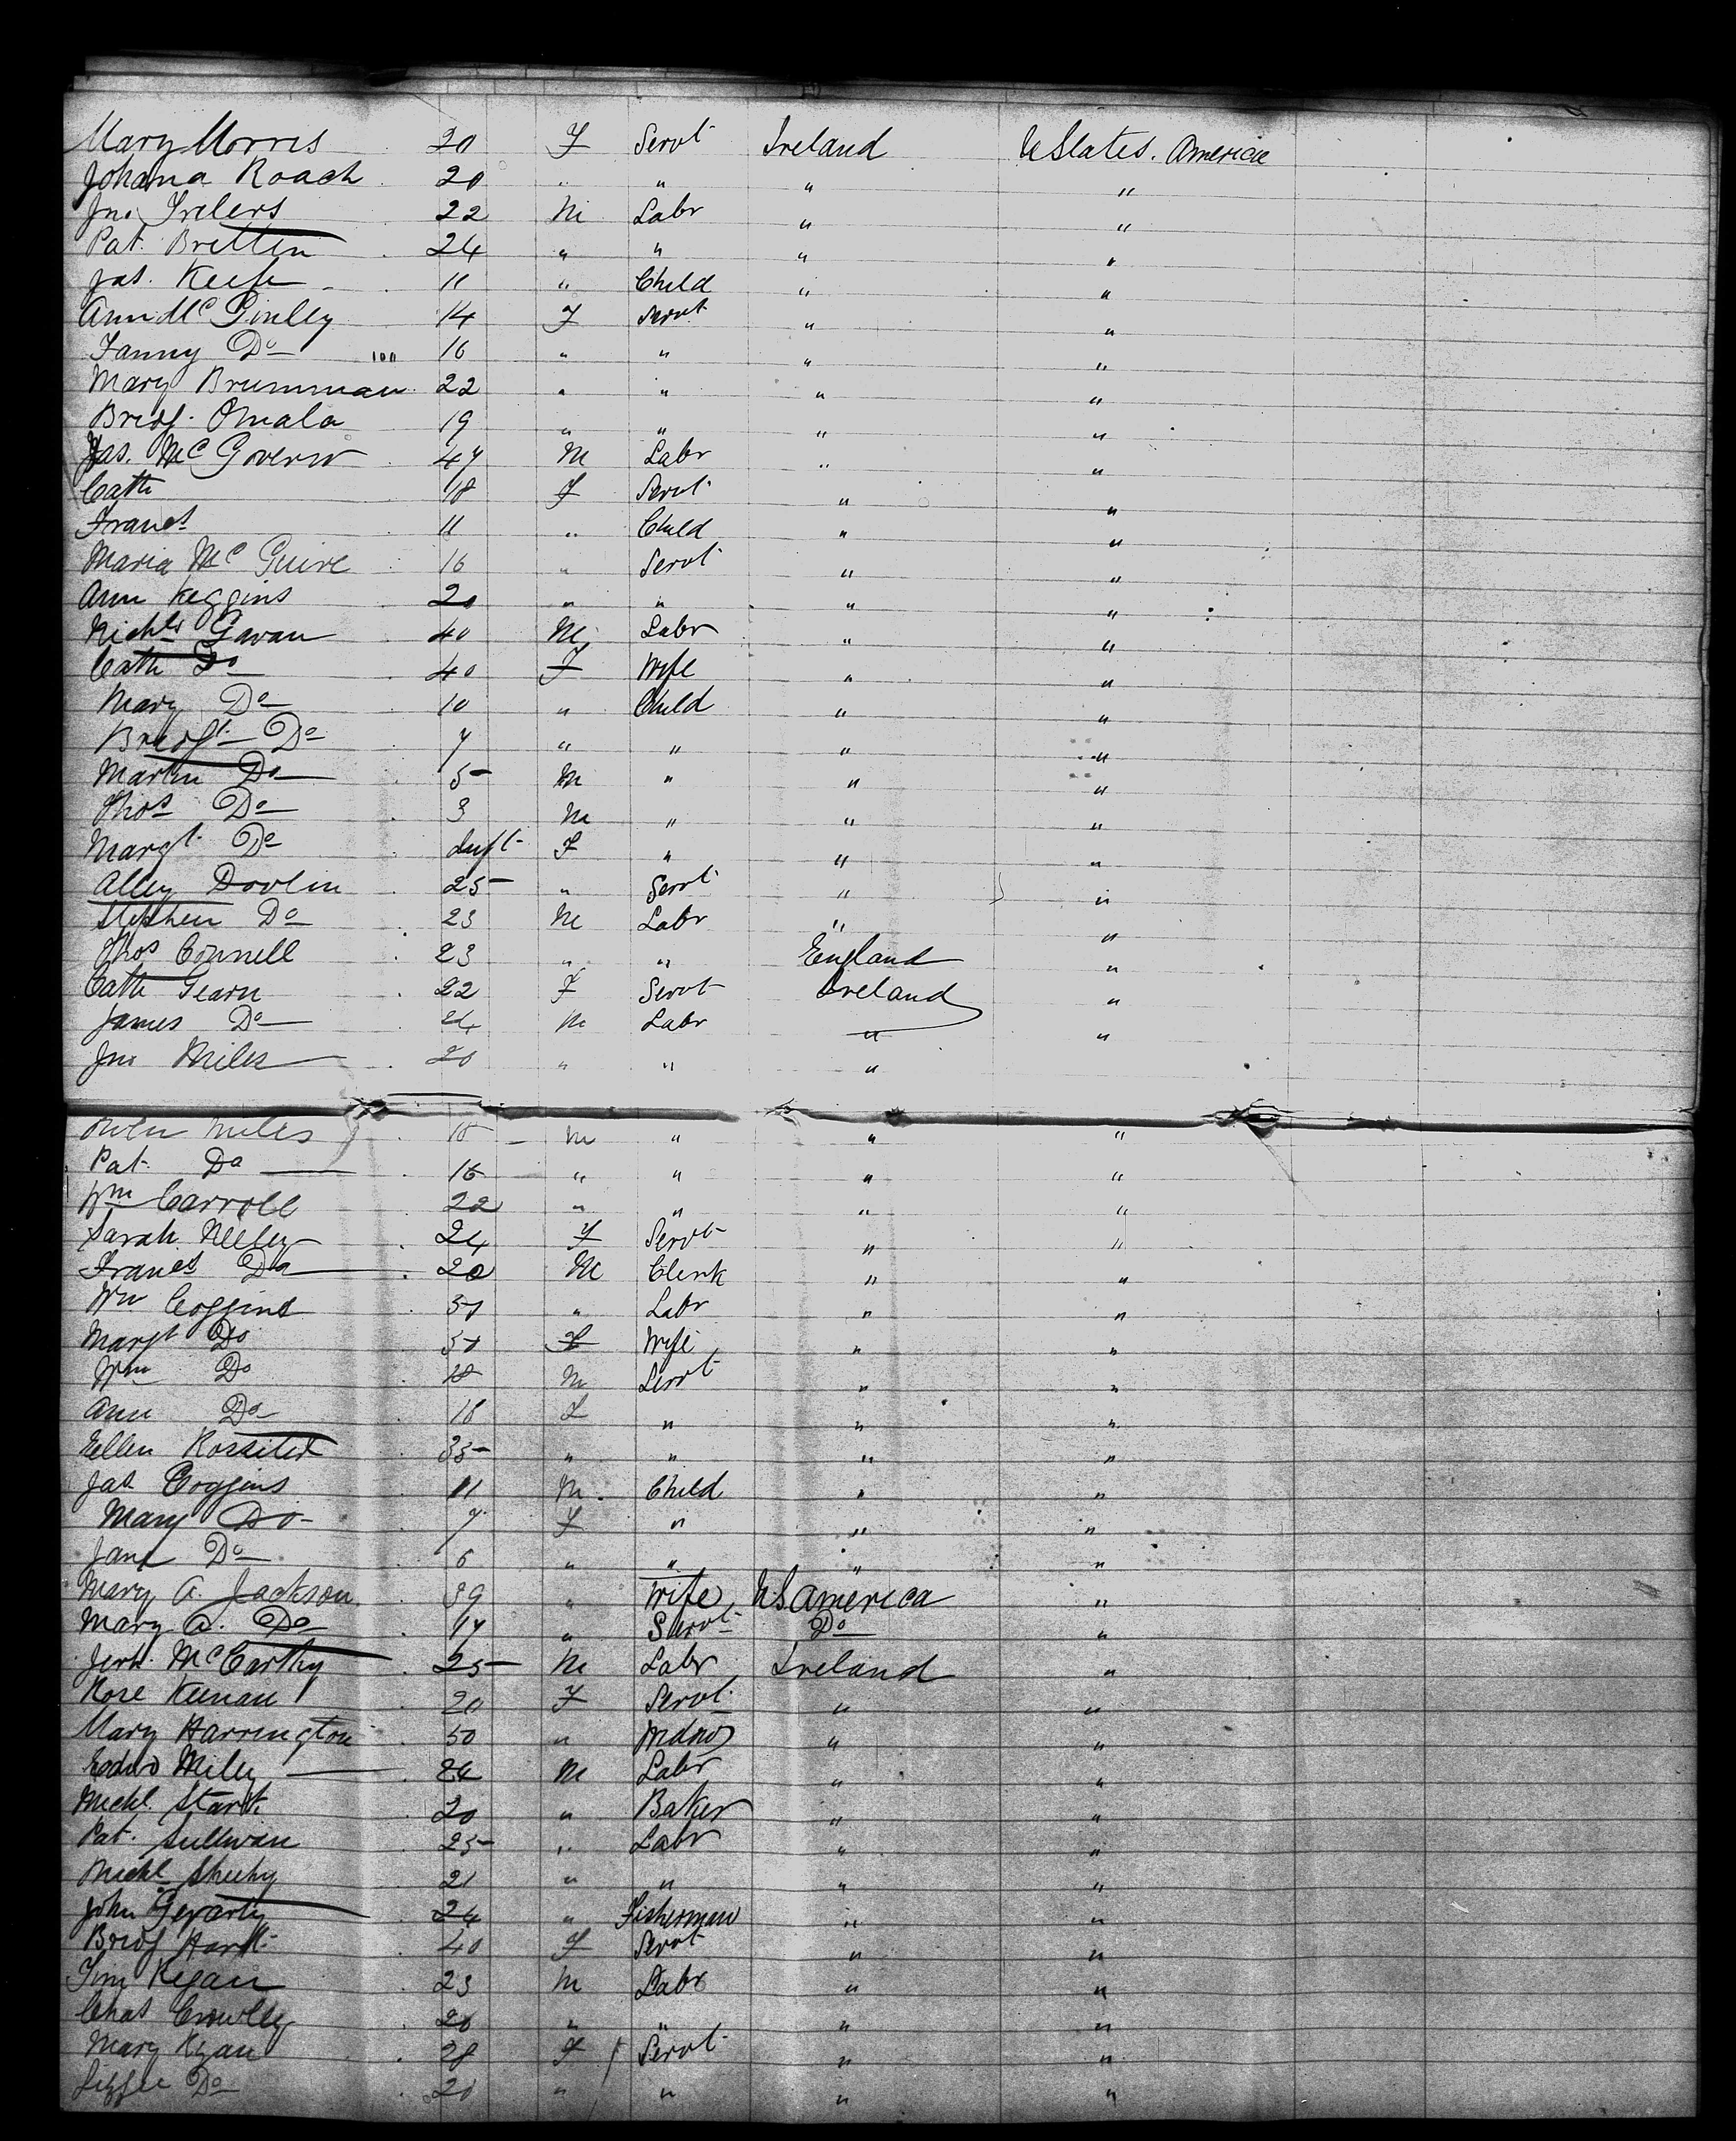 Mary Morris 20 F Servt Ireland U States. America
Johana Roach 20 " " " "
Jno. 22 M Labr " "
Pat. Brettin 24 " " " "
Jas. Keefe 11 " Child " "
Ann McGinley 14 F Servt " "
Fanny Do 16 " " " "
Mary Brumman 22 " " " "
Bridg. Omala 19 " " " "
Jas. McGovern 47 M Labr " "
Cath 18 F Servt " "
Francs 11 " Child " "
Maria McGuire 16 " Servt " "
Ann Keggins 20 " " " "
Nichls Gavan 40 M Labr " "
Cath Do 40 F Wife " "
Mary Do 10 " Child " "
Bridgt Do 7 " " " "
Martin Do 5 M " " "
Thos Do 3 M " " "
Margt Do Inft F " " "
Alley Dovlin 25 " Servt " "
Stephen Do 23 M Labr " "
Thos Connell 23 " " England "
Cath Gearn 22 F Servt Ireland "
James Do 24 M Labr " "
Jno Miles 20 " " "
Owen Miles 18 M " " "
Pat. Do 16 " " " "
Wm Carroll 22 " " " "
Sarah Neeley 24 F Servt " "
Francs Do 20 M Clerk " "
Wm Coggins 50 " Labr " "
Margt Do 50 F Wife " "
Wm Do 18 M Servt " "
Ann Do 18 F " " "
Ellen Rossiter 35 " " " "
Jas Coggins 11 M Child " "
Mary Do 7 F " " "
Jane Do 6 " " " "
Mary A. Jackson 39 " Wife U.S. America "
Mary A. Do 17 " Servt Do "
Jerh. McCarthy 25 M Labr Ireland "
Rose Keenan 20 F Servt " "
Mary Harrington 50 " Widow " "
Edwd Miley 24 M Labr " "
Michl. Stark 20 " Baker " "
Pat. Sullivan 25 " Labr " "
Michl Sheehy 21 " " " "
John Gerarty 24 " Fisherman " "
Bridg Hartt 40 F Servt " "
Tim Regan 23 M Labr " "
Chas Crowlley 20 " " " "
Mary Ryan 28 F Servt " "
Lizzie Do 20 " " " "